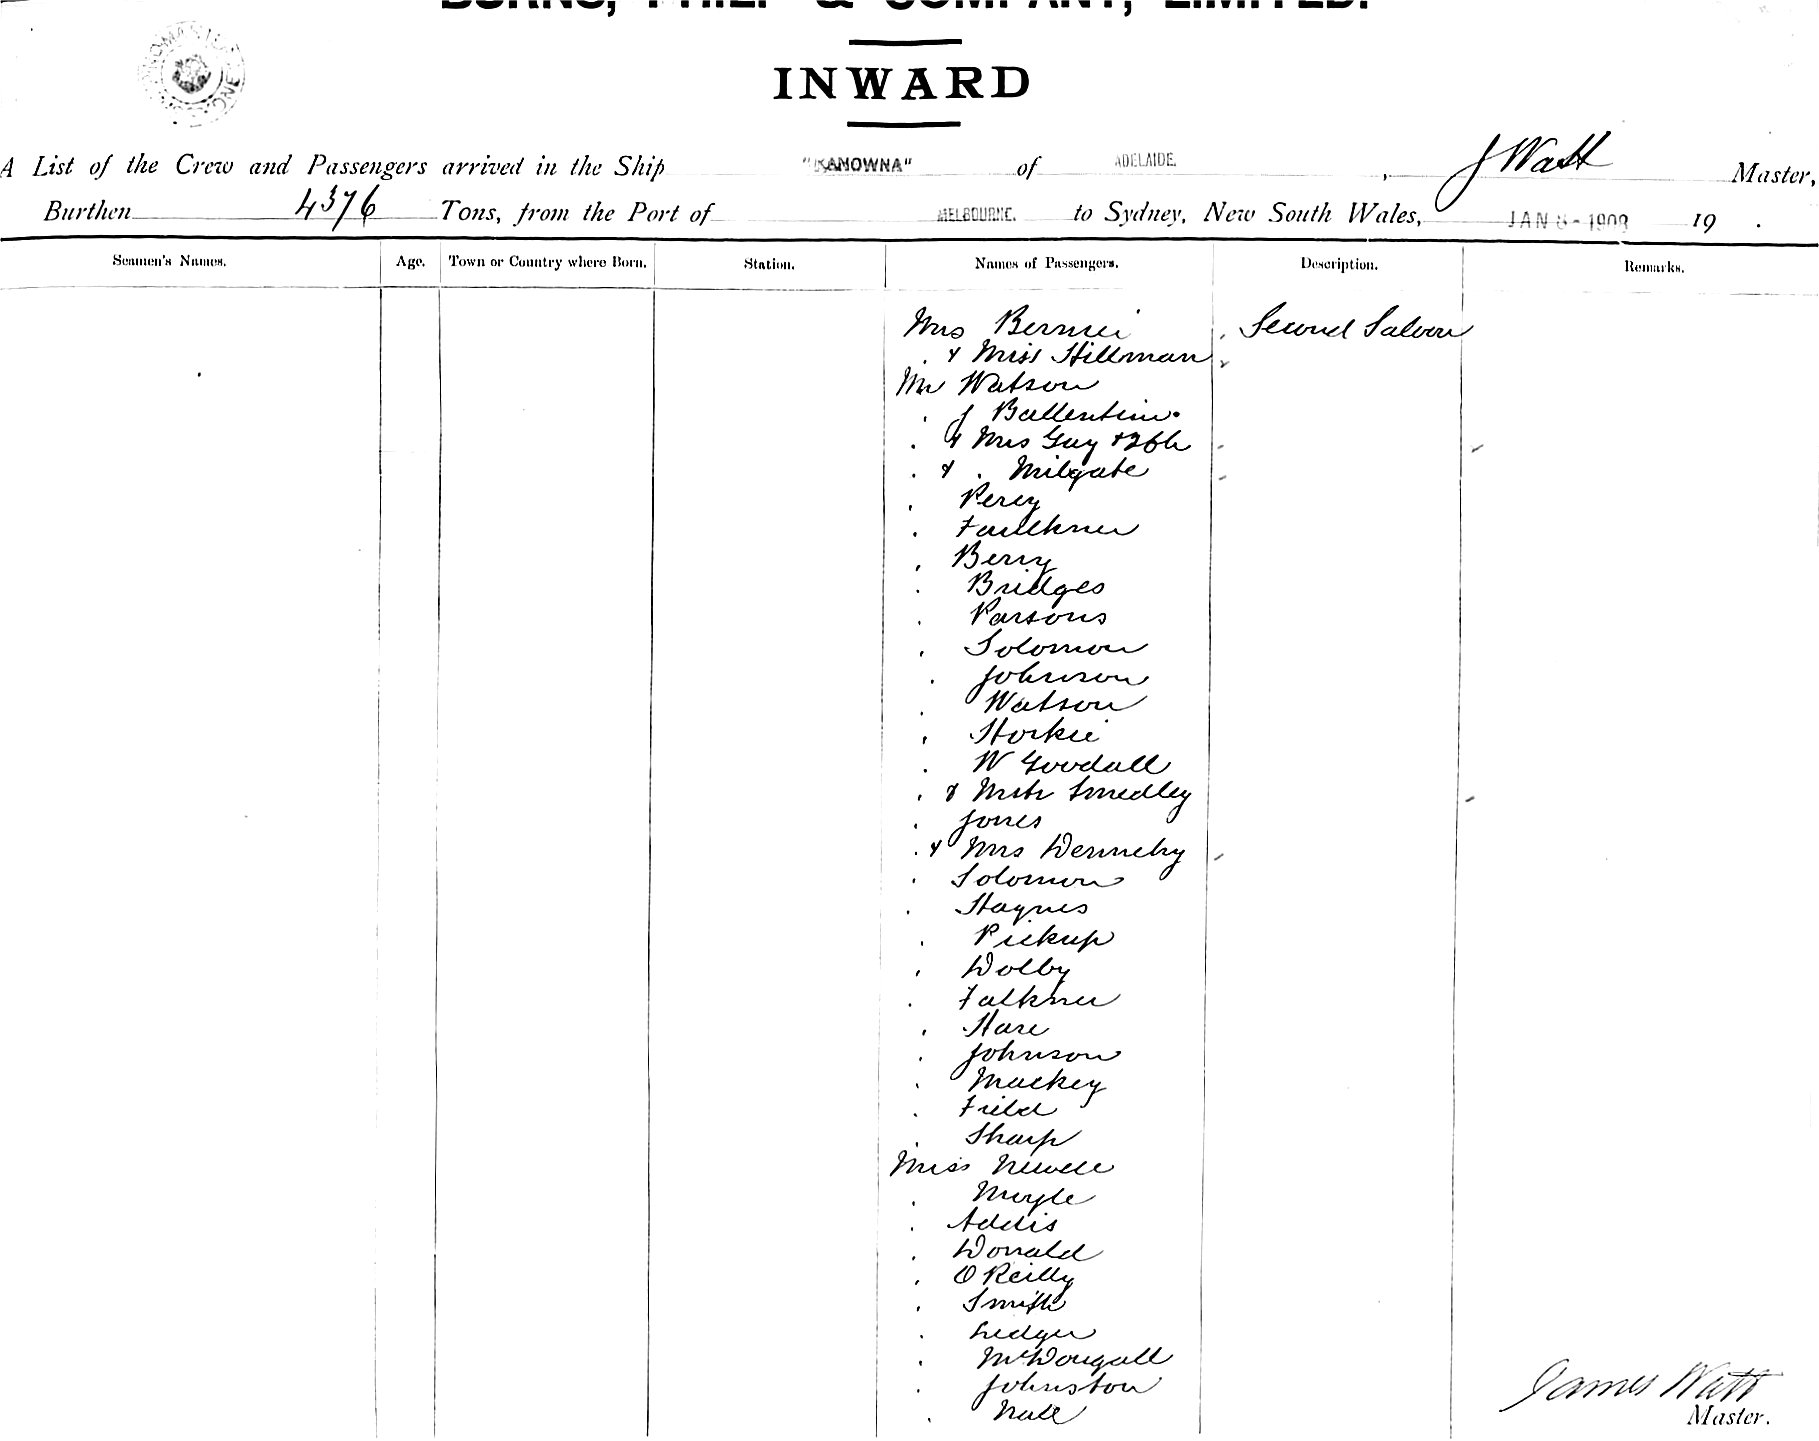 BURNS, PHILP & COMPANY, LIMITED.
INWARD
A List of the Crew and Passengers arrived in the Ship "KANOWNA" of ADELAIDE. , J Watt Master,
Burthen 4376 Tons, from the Port of MELBOURNE. to Sydney, New South Wales, JAN 8 - 1908 19 .
Seamen's Names. Age. Town or Country where Born. Station. Names of Passengers. Description. Remarks.
Mrs Second Saloon
. & Miss Hillman
Mr Watson
. J Ballentine
. & Mrs Guy
. & . Milgate
. Percy
. Faulkner
. Berry
. Bridges
. Parsons
. Solomon
. Johnson
. Watson
. Horkie
. W Goodall
. & Mstr Smedley
. Jones
. & Mrs Denneby
. Solomon
. Haynes
. Pickup
. Dolby
. Falkner
. Hare
. Johnson
. Mackey
. Field
. Sharp
Miss Newell
. Moyle
. Addis
. Donald
. O Reilly
. Smith
. Ledger
. McDougall
. Johnston
. Nall
James Watt
Master.